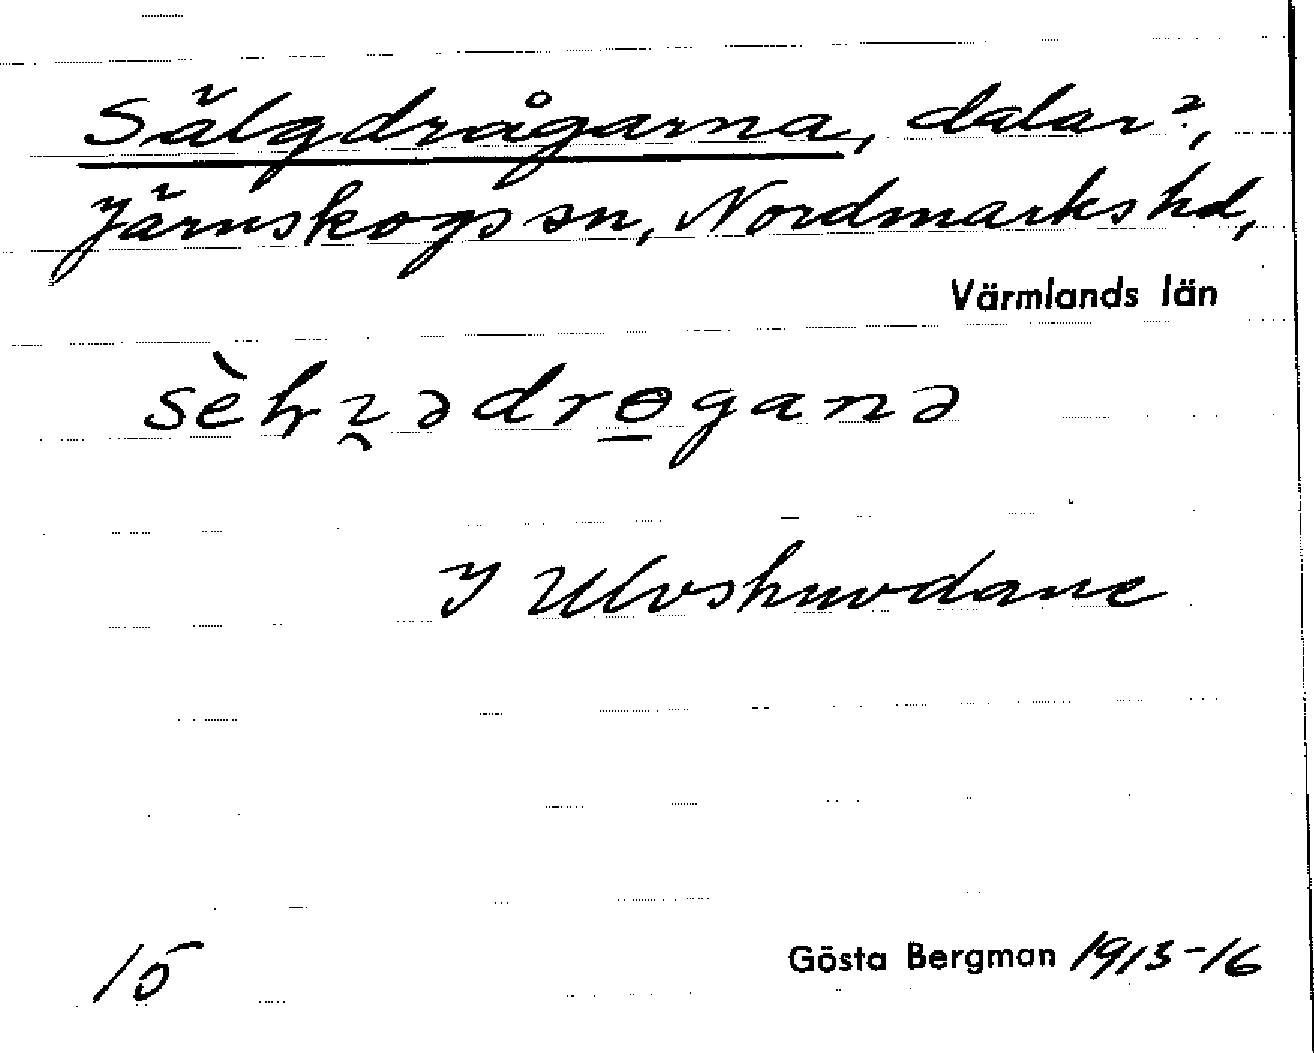 Sälgdrågarna, dalar?,
Järnskogs sn, Nordmarks hd,
Värmlands län
I Ulvshuvdane
15 Gösta Bergman 1913-16